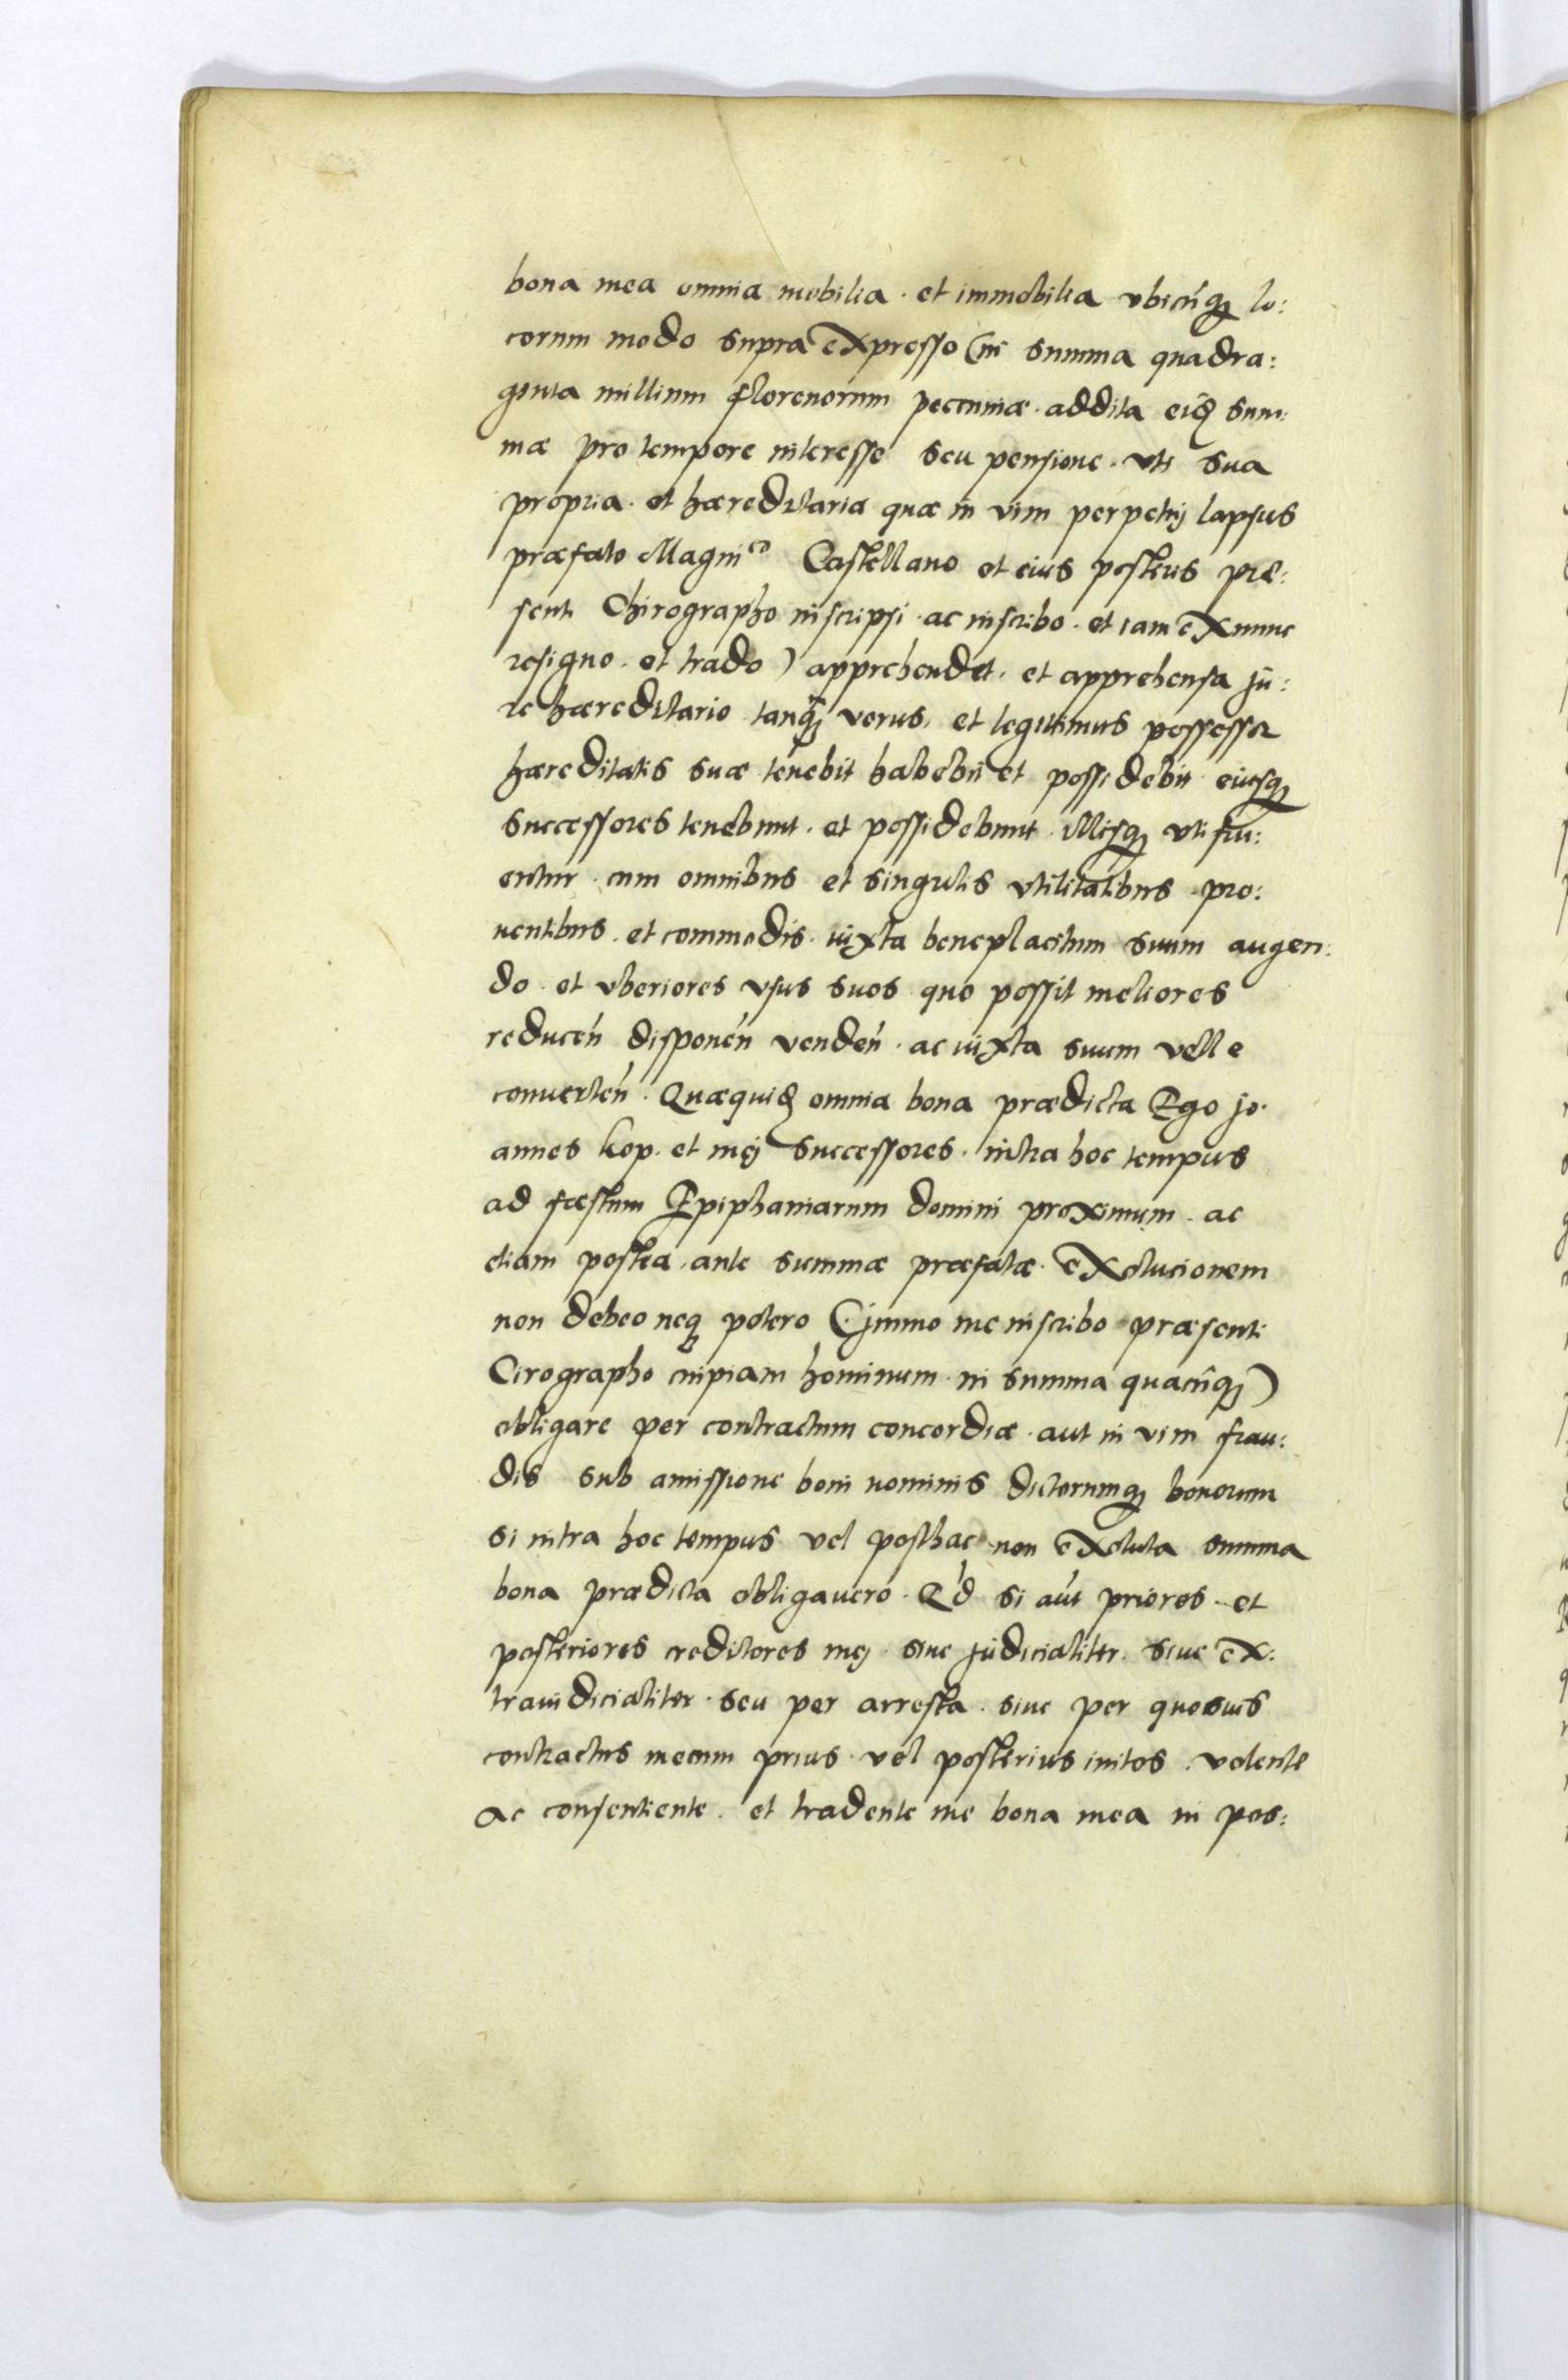 bona mea omnia mobilia. et immobilia vbicūq lo:
corum modo supra expresso (in summa quadra:
ginta millium florenorum pecuniæ. addita eid sum:
mæ pro tempore interesse seu pensione. vti sua
propria. et hæreditaria quæ in vim perpetuj lapsus
præfato Magnico Castellano et eius posteris præ:
senti Chirographo inscripsi. ac inscribo. et iam ex nunc
resigno. et trado) apprehendet. et apprehensa ju:
re hæreditario tanq̄ verus. et legittimus possessor
hæreditatis suæ tenebit habebit et possidebit eiusq
successores tenebunt. et possidebunt. illisq vti fru:
entur. cum omnibus et singulis vtilitatibus pro:
uentibus. et commodis. iuxta beneplacitum suum augen:
do. et vberiores vsus suos quo possit meliores
reduceń disponeń vendeń. ac iuxta suum velle
converteń. Quæquid omnia bona prædicta Ego jo.
annes kop. et mej successores. intra hoc tempus
ad fæstum Epiphaniarum domini proximum. ac
etiam postea. ante summæ præfatæ. exolucionem
non debeo neq potero (jmmo me inscribo præsenti
Cirographo cuipiam hominum. in summa quacūq)
obligare per contractum concordiæ. aut in vim frau:
dis sub amissione boni nominis dictorumq bonorum
si intra hoc tempus vel posthac non exoluta summa
bona prædicta obligauero. Qd si aut priores. et
posteriores creditores mej. siue judicialiter. siue ex:
traiudicialiter. seu per arresta. siue per quosuis
contractus mecum prius. vel posterius initos. volente
ac consentiente. et tradente me bona mea in pos: